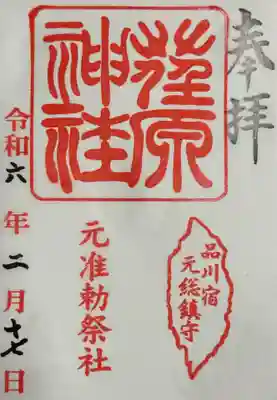 奉拝
荏原
神社
品川宿
元総鎮守
元准勅祭社
令和六年二月十七日